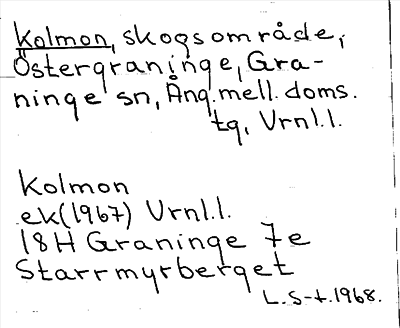 Kolmon, skogsområde i
Östergraninge, Gra-
ninge sn, Ång.mell. doms.
tg, Vrnl.l.
Kolmon
ek(1967) Vrnl.l.
18H Graninge 7e
Starrmyrberget
L.S-t.1968.